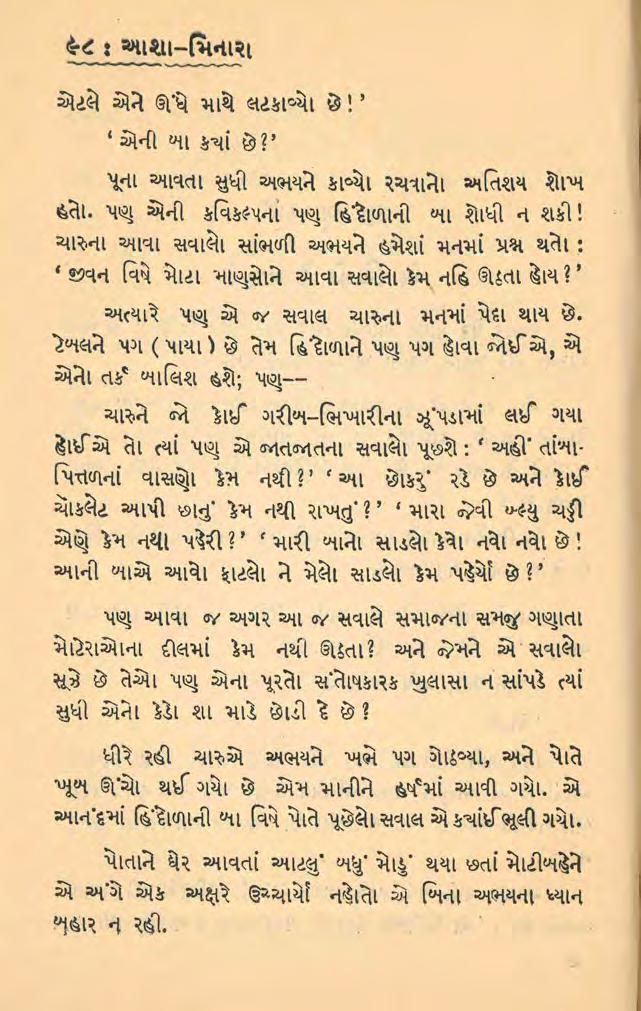 ૯૮ : આશા-મિનારા
એટલે એને ઊંધે માથે લટકાવ્યો છે!’
‘ એની બા ક્યાં છે?’
પૂના આવતા સુધી અભયને કાવ્યો રચત્રાનો અતિશય શોખ
હતો. પણ એની કવિકલ્પના પણ હિંદોળાની બા શોધી ન શકી!
ચારુના આવા સવાલો સાંભળી અભયને હમેશાં મનમાં પ્રશ્ન થતો :
‘ જીવન વિષે મોટા માણુસોને આવા સવાલો કેમ નહિ ઊઠતા હોય?’
અત્યારે પણ એ જ સવાલ ચારુના મનમાં પેદા થાય છે.
ટેબલને પગ ( પાયા ) છે તેમ હિંદોળાને પણ પગ હોવા જોઈએ, એ
એનો તર્ક બાલિશ હશે; પણ--
ચારુને જો કોઈ ગરીબ-ભિખારીના ઝૂંપડામાં લઈ ગયા
હોઈએ તો ત્યાં પણ એ જાતજાતના સવાલો પૂછશે : ‘ અહીં તાંબા-
પિત્તળનાં વાસણો કેમ નથી?’ ‘ આ છોકરું રડે છે અને કોઈ
ચૉકલેટ આપી છાનું કેમ નથી રાખતું?’ ‘ મારા જેવી બ્લ્યુ ચડ્ડી
એણે કેમ નથી પહેરી?’ ‘ મારી બાનો સાડલો કેવો નવો નવો છે!
આની બાએ આવો ફાટલો ને મેલો સાડલો કેમ પહેર્યો છે?’
પણ આવા જ અગર આ જ સવાલે સમાજના સમજુ ગણાતા
મોટેરાઓના દીલમાં કેમ નથી ઊઠતા? અને જેમને એ સવાલો
સૂઝે છે તેઓ પણ એના પૂરતો સંતોષકારક ખુલાસા ન સાંપડે ત્યાં
સુધી એનો કેડો શા માડે છોડી દે છે?
ધીરે રહી ચારુએ અભયને ખભે પગ ગોઠવ્યા, અને પોતે
ખૂબ ઊંચો થઈ ગયો છે એમ માનીને હર્ષમાં આવી ગયો. એ
આનંદમાં હિંદોળાની બા વિષે પોતે પૂછેલો સવાલ એ ક્યાંઈ ભૂલી ગયો.
પોતાને ઘેર આવતાં આટલું બધું મોડું થયા છતાં મોટીબહેને
એ અંગે એક અક્ષરે ઉચ્ચાર્યો નહોતો એ બિના અભયના ધ્યાન
બહાર ન રહી.